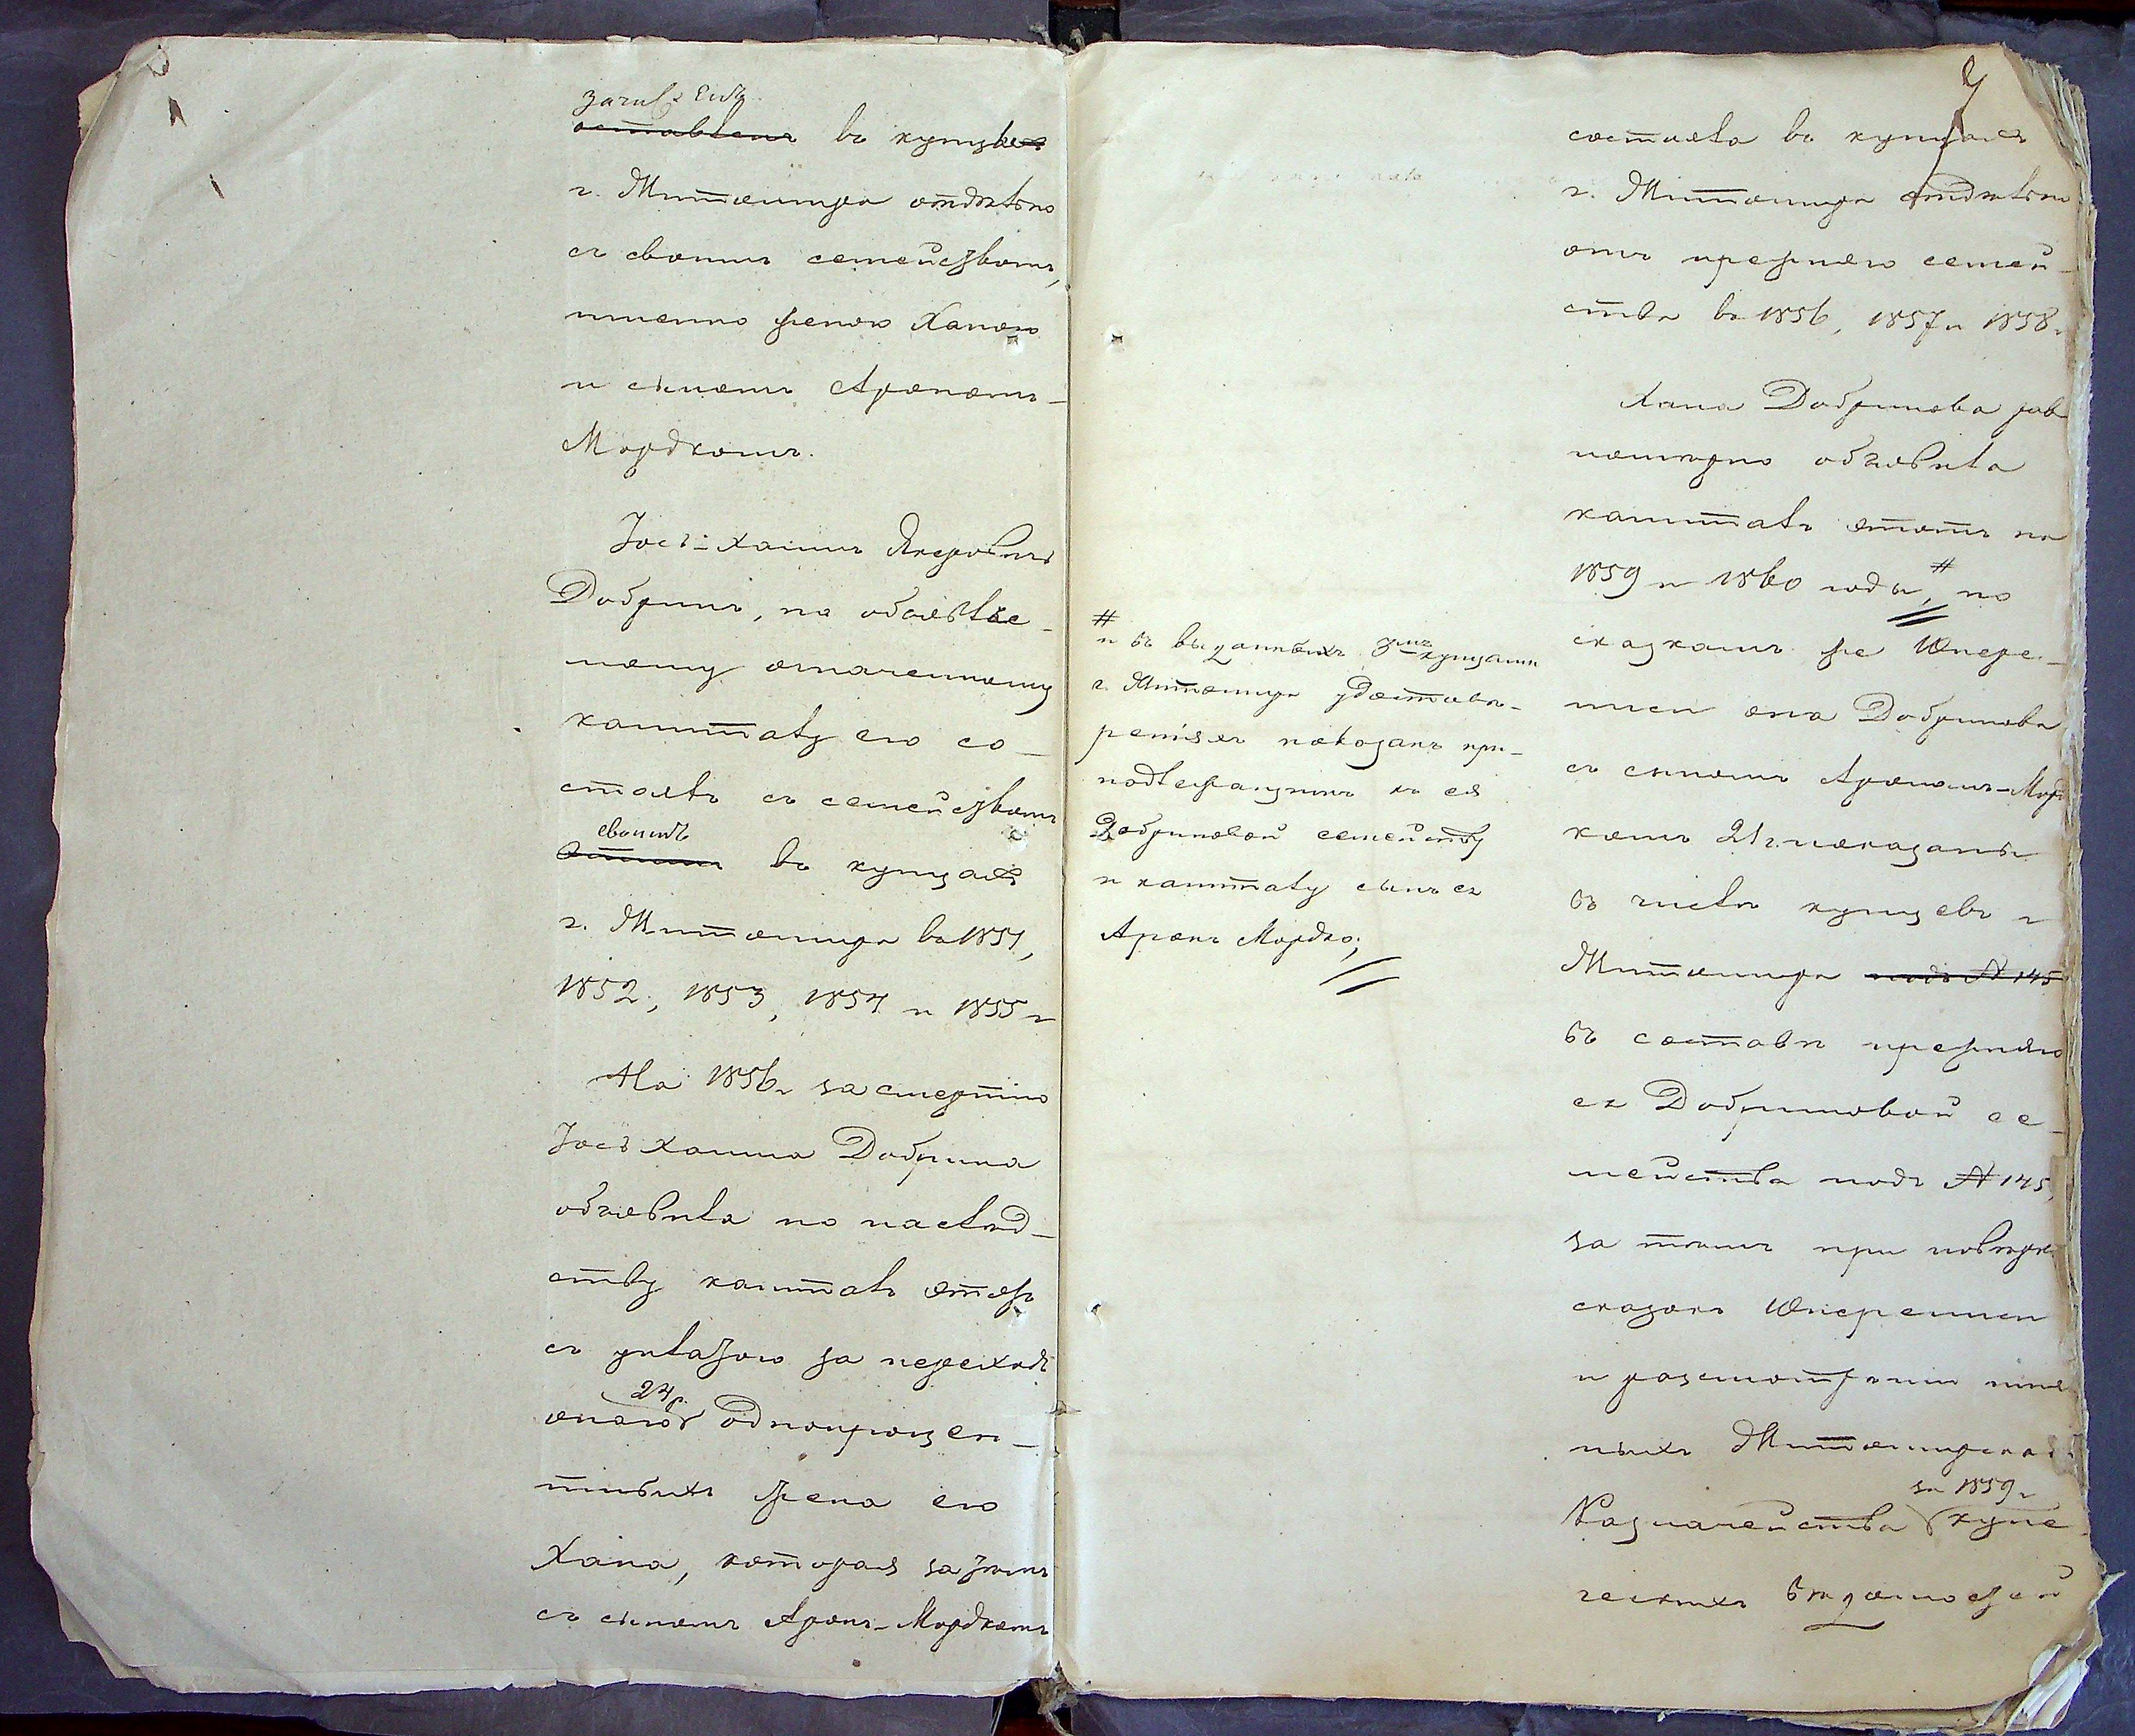 оставленъ въ купцы
г. Житомира отдѣльно
съ своимъ семействомъ,
именно женою Ханою
и сыномъ Арономъ-
Мордкомъ.
Іось-Хаимъ Янкеровичъ
Добринъ, на объявлен-
ному означенному
капиталу его со-
стоялъ съ семействомъ
своимъ
въ купцахъ
г. Житомира въ 1851,
1852, 1853, 1854 и 1855 г
На 1856 г за смертію
Іось Хаима Добрина
объявила по наслѣд-
ству капиталъ этотъ
съ уплатою за переходъ
24 р.
онаго однопроцен-
тныхъ жена его
Хана, которая затѣмъ
съ сыномъ Аронъ-Мордкомъ
9
состояла въ купцахъ
г. Житомира отдѣльно
отъ прежняго семей-
ства въ 1856, 1857 и 1858 г
Хана Добринова рав
номѣрно объявила
капиталъ этотъ на
1859 и 1860 годы, # но
сказкамъ же Х перe-
писи она Добринова
съ сыномъ Арономъ-Морд
комъ 21 г. показаны
въ числѣ купцевъ г
Житомира подъ N 145
въ составѣ прежняго
ея Добриновой се-
мейства подъ N 145,
за тѣмъ при повѣркѣ
сказокъ Х переписи
и разсмотрѣнии имѣ
ныхъ Житомирскаго
за 1859 г
Казначейства купе
ческихъ вѣдомостей
#
и въ выданныхъ купцами
г. Житомира удостовѣ-
реніяхъ показанъ при-
надлежащимъ къ ея
Добриновой семейству
и капиталу сынъ ея
Аронъ Мордко;